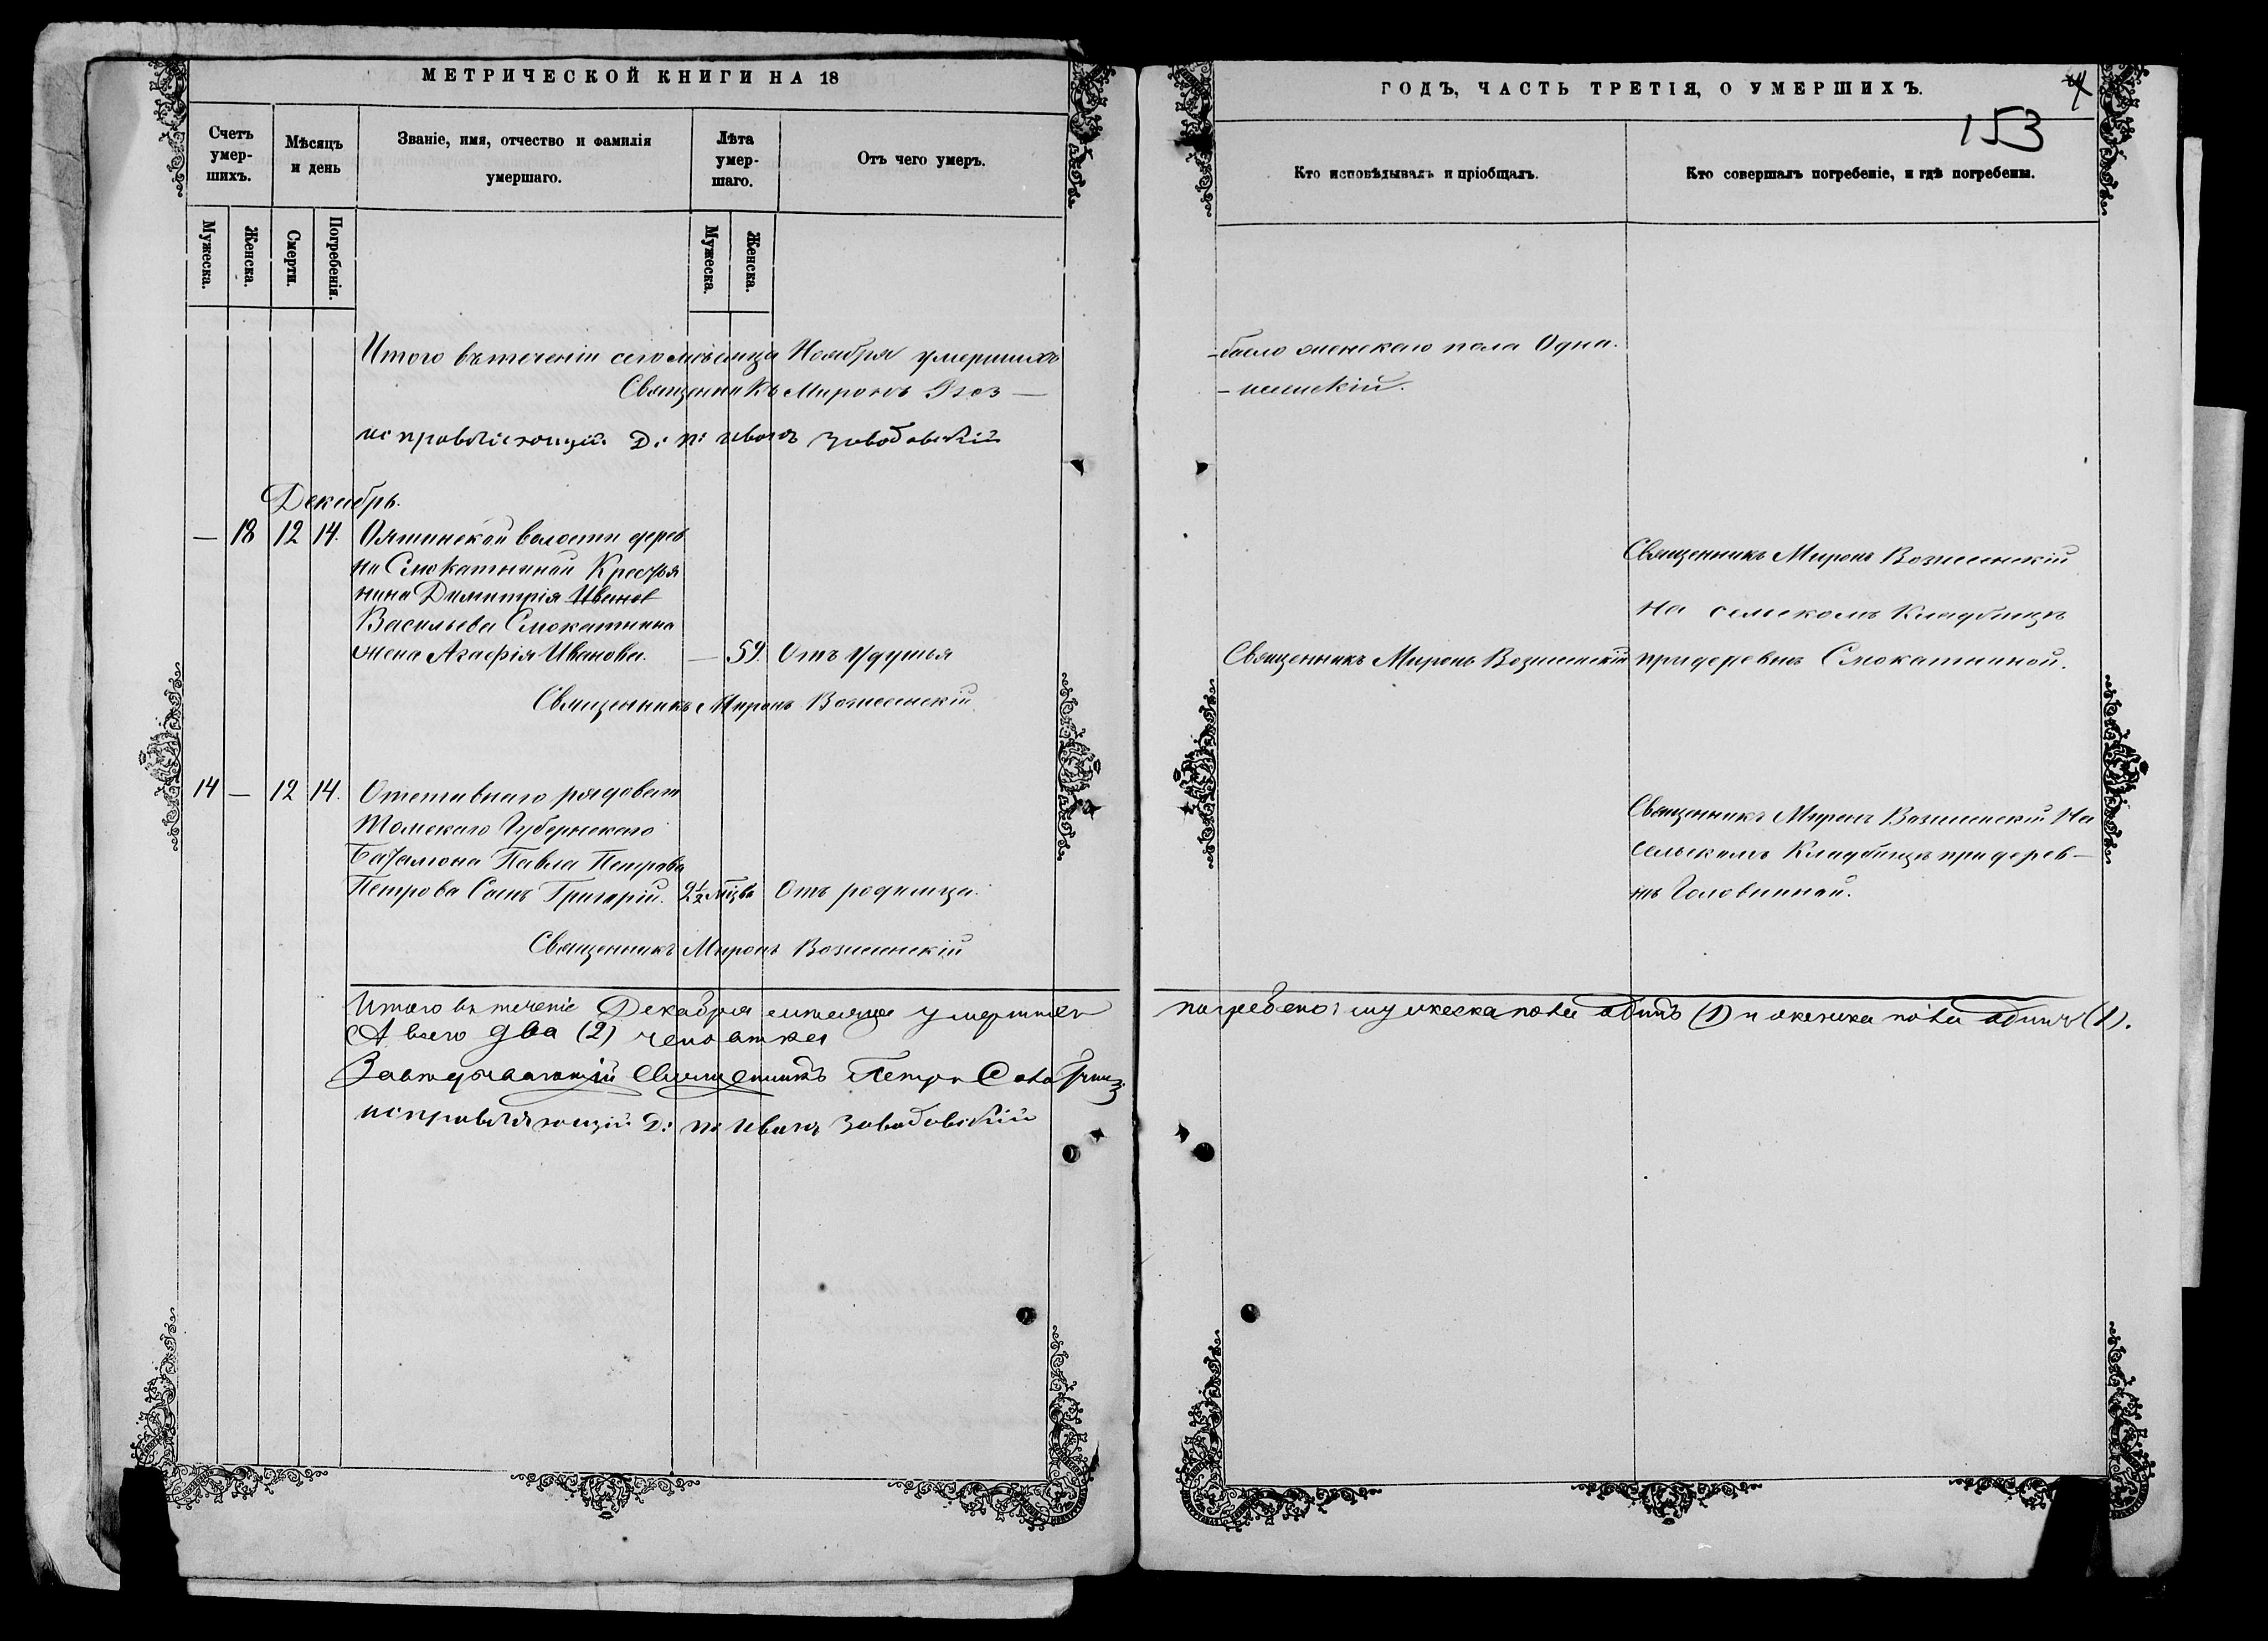 МЕТРИЧЕСКОЙ КНИГИ НА 18
Счетъ умер-шихъ.
Мѣсяцъ и день
Званіе, имя, отчество и фамилія умершаго.
Лѣта умер-шаго.
Отъ чего умеръ.
Мужеска.
Женска.
Смерти.
Погребенія.
Мужеска.
Женска.
Итого въ теченіи сего мѣсяца Ноября умершихъ
Священникъ Миронъ Воз—
исправляющій Д: п: Иванъ Заводовскій
Декабрь.
— 18 12 14. Оятинской волости дерев
ни Смокатниной Крестья
нина Димитрія Иванов
Васильева Смокатнина
жена Агафія Иванова. — 59. Отъ удушья
Священникъ Миронъ Вознесенскій
14 — 12 14. Отставнаго рядоваго
Томскаго Губернскаго
Баталіона Павла Петрова
Петрова Сынъ Григорій. 2½ мѣсв Отъ родимца.
Священникъ Миронъ Вознесенскій
Итого въ теченіе Декабря мѣсяца умершихъ
А всего два (2) человѣка
Завѣдывающій Священникъ Петръ
исправляющій Д: п: Иванъ Заводовскій
ГОДЪ, ЧАСТЬ ТРЕТІЯ, О УМЕРШИХЪ.
153
Кто исповѣдывалъ и пріобщалъ.
Кто совершалъ погребеніе, и гдѣ погребены.
-было женскаго пола Одна.
-несенскій.
Священникъ Миронъ Вознесенскій
на сельскомъ кладбищѣ
Священникъ Миронъ Вознесенскій при деревнѣ Смокатниной.
Священникъ Миронъ Вознесенскій На
сельскомъ Кладбищѣ при дерев—
нѣ Головинной.
погребено: мужеска пола одинъ (1) и женска пола одинъ (1).